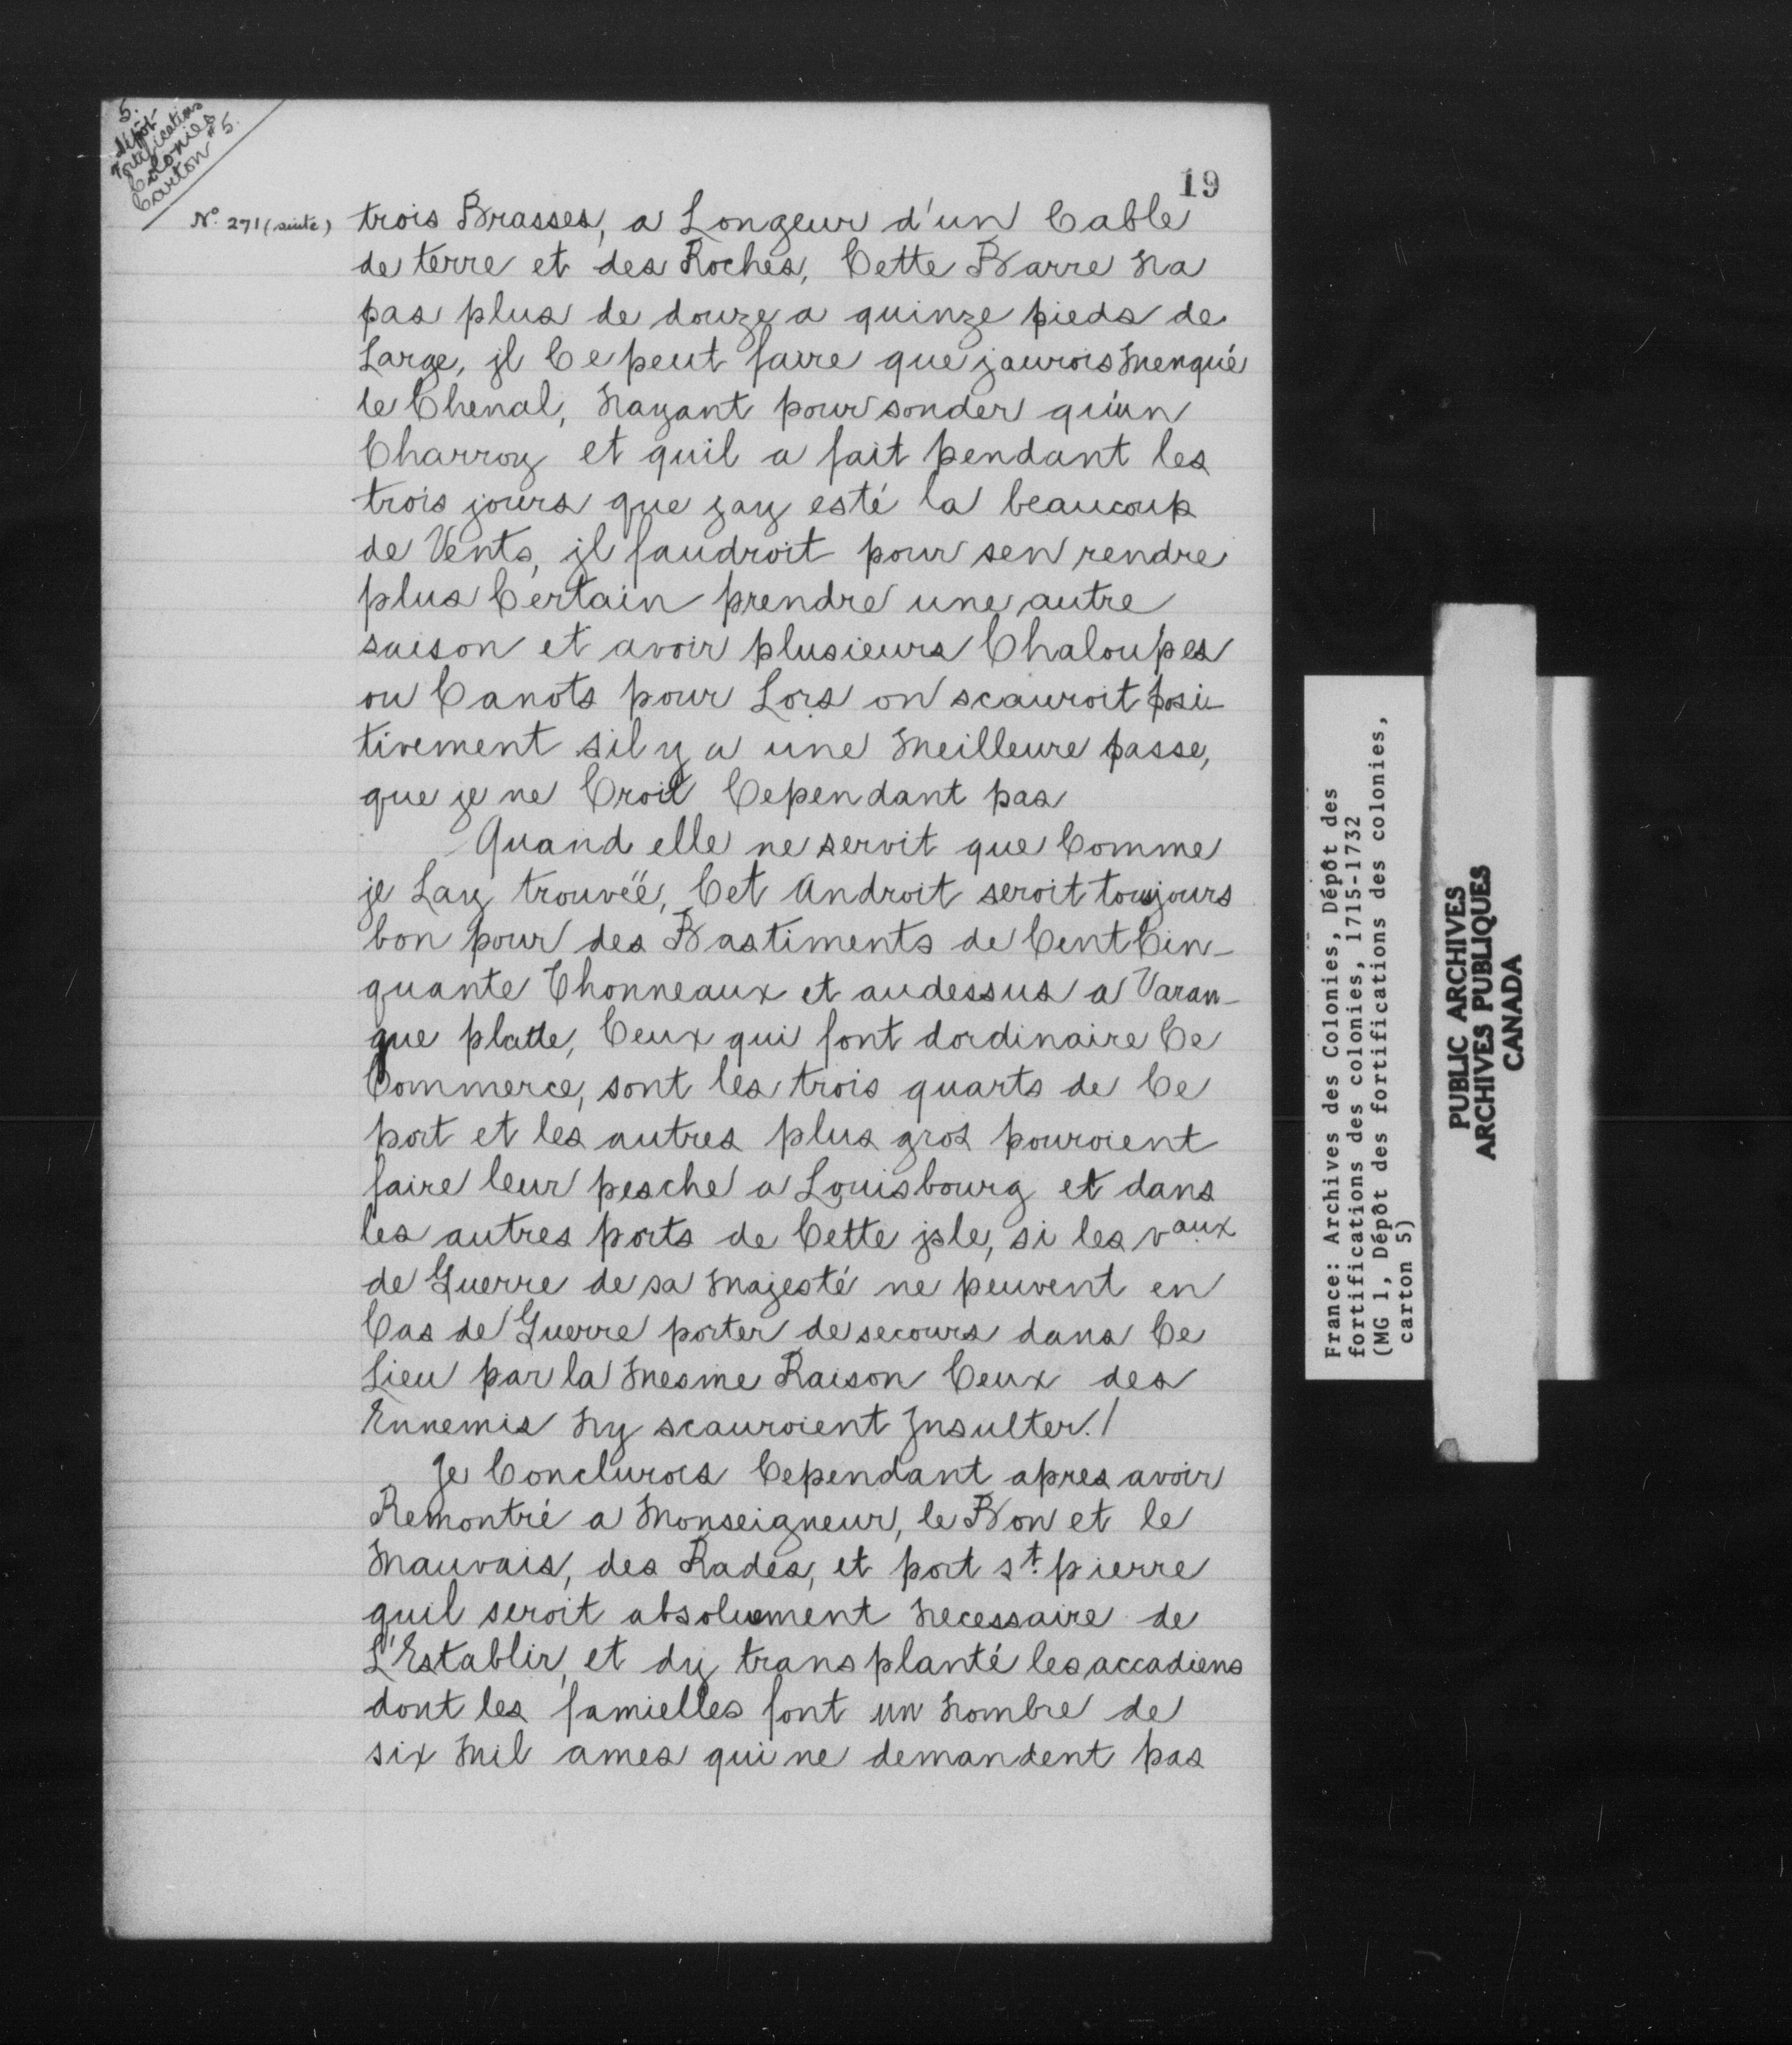 5.
Dépôt
Fortifications
Colonies
Carton #5.
19
No. 271 (suite)
trois Brasses, a Longeur d'un Cable
de terre et des Roches, Cette Barre na
pas plus de douze a quinze pieds de
Large, jl Ce peut faire que jaurois menqué
le Chenal, nayant pour sonder qu'un
Charroy et quil a fait pendant les
trois jours que jay esté la beaucoup
de Vents, jl faudroit pour sen rendre
plus Certain prendre une autre
saison et avoir plusieurs Chaloupes
ou Canots pour Lors on scauroit posi-
tivement sil y a une meilleure passe,
que je ne Croit Cependant pas
Quand elle ne servit que Comme
je Lay trouvéë, Cet Androit seroit toujours
bon pour des Bastiments de Cent Cin-
quante Thonneaux et audessus a Varan-
gue platte, Ceux qui font dordinaire Ce
Commerce, sont les trois quarts de Ce
port et les autres plus gros pouroient
faire leur pesche a Louisbourg et dans
les autres ports de Cette jsle, si les vaux
de Guerre de sa majesté ne peuvent en
Cas de Guerre porter de secours dans Ce
Lieu par la mesme Raison Ceux des
Ennemis ny scauroient Jnsulter./
Je Conclurois Cependant apres avoir
Remontré a Monseigneur, le Bon et le
mauvais, des Rades, et port st. pierre
quil seroit absoluement necessaire de
L'Establir, et dy transplanté les accadiens
dont les famielles font un nombre de
six mil ames qui ne demandent pas
France: Archives des Colonies, Dépôt des
fortifications des colonies, 1715-1732
(MG 1, Dépôt des fortifications des colonies,
carton 5)
PUBLIC ARCHIVES
ARCHIVES PUBLIQUES
CANADA